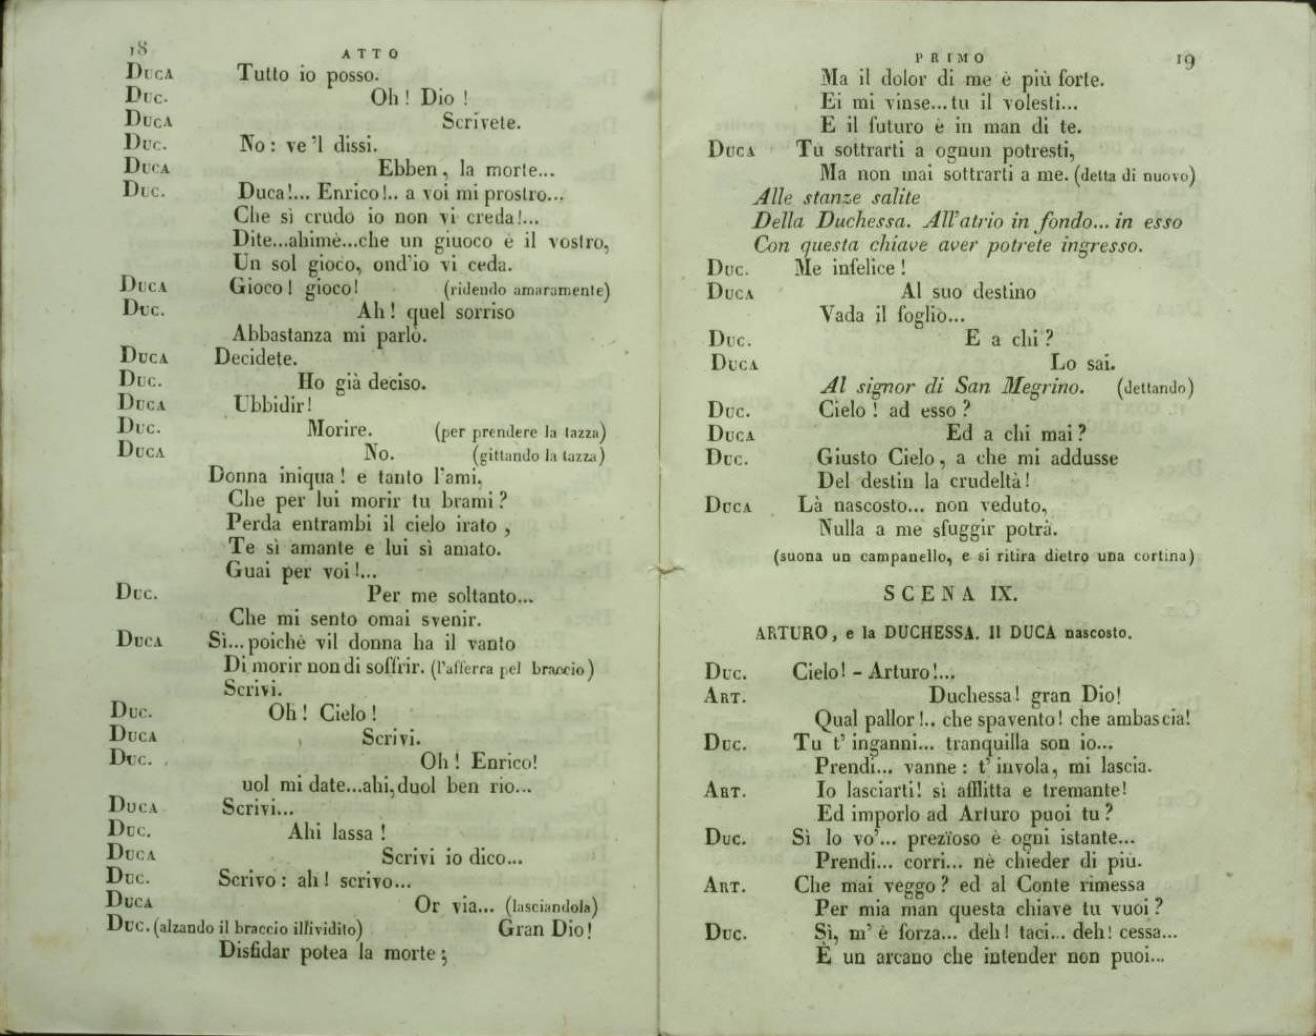 18
ATTO
DUCA Tutto io posso.
DUC. Oh! Dio!
DUCA Scrivete.
DUC. No: ve 'l dissi.
DUCA Ebben, la morte...
DUC. Duca!... Enrico!.. a voi mi prostro...
Che sì crudo io non vi creda!...
Dite...ahimè...che un giuoco è il vostro,
Un sol gioco, ond'io vi ceda.
DUCA Gioco! gioco! (ridendo amaramente)
DUC. Ah! quel sorriso
Abbastanza mi parlò.
DUCA Decidete.
DUC. Ho già deciso.
DUCA Ubbidir!
DUC. Morire. (per prendere la tazza)
DUCA No. (gittando la tazza)
Donna iniqua! e tanto l'ami,
Che per lui morir tu brami?
Perda entrambi il cielo irato,
Te sì amante e lui sì amato.
Guai per voi!...
DUC. Per me soltanto...
Che mi sento omai svenir.
DUCA Sì...poichè vil donna ha il vanto
Di morir non di soffrir. (l'afferra pel braccio)
Scrivi.
DUC. Oh! Cielo!
DUCA Scrivi.
DUC. Oh! Enrico!
uol mi date...ahi,duol ben rio...
DUCA Scrivi...
DUC. Ahi lassa!
DUCA Scrivi io dico...
DUC. Scrivo: ah! scrivo...
DUCA Or via... (lasciandola)
DUC. (alzando il braccio illividito) Gran Dio!
Disfidar potea la morte;
PRIMO
19
Ma il dolor di me è più forte.
Ei mi vinse...tu il volesti...
E il futuro è in man di te.
DUCA Tu sottrarti a ognun potresti,
Ma non mai sottrarti a me. (detta di nuovo)
Alle stanze salite
Della Duchessa. All'atrio in fondo... in esso
Con questa chiave aver potrete ingresso.
DUC. Me infelice!
DUCA Al suo destino
Vada il foglio...
DUC. E a chi?
DUCA Lo sai.
Al signor di San Megrino. (dettando)
DUC. Cielo! ad esso?
DUCA Ed a chi mai?
DUC. Giusto Cielo, a che mi addusse
Del destin la crudeltà!
DUCA Là nascosto... non veduto,
Nulla a me sfuggir potrà.
(suona un campanello, e si ritira dietro una cortina)
SCENA IX.
ARTURO, e la DUCHESSA. Il DUCA nascosto.
DUC. Cielo! - Arturo!...
ART. Duchessa! gran Dio!
Qual pallor!.. che spavento! che ambascia!
DUC. Tu t' inganni... tranquilla son io...
Prendi... vanne: t' invola, mi lascia.
ART. Io lasciarti! sì afflitta e tremante!
Ed imporlo ad Arturo puoi tu?
DUC. Sì lo vo'... prezïoso è ogni istante...
Prendi... corri... nè chieder di più.
ART. Che mai veggo? ed al Conte rimessa
Per mia man questa chiave tu vuoi?
DUC. Sì, m' è forza... deh! taci... deh! cessa...
È un arcano che intender non puoi...